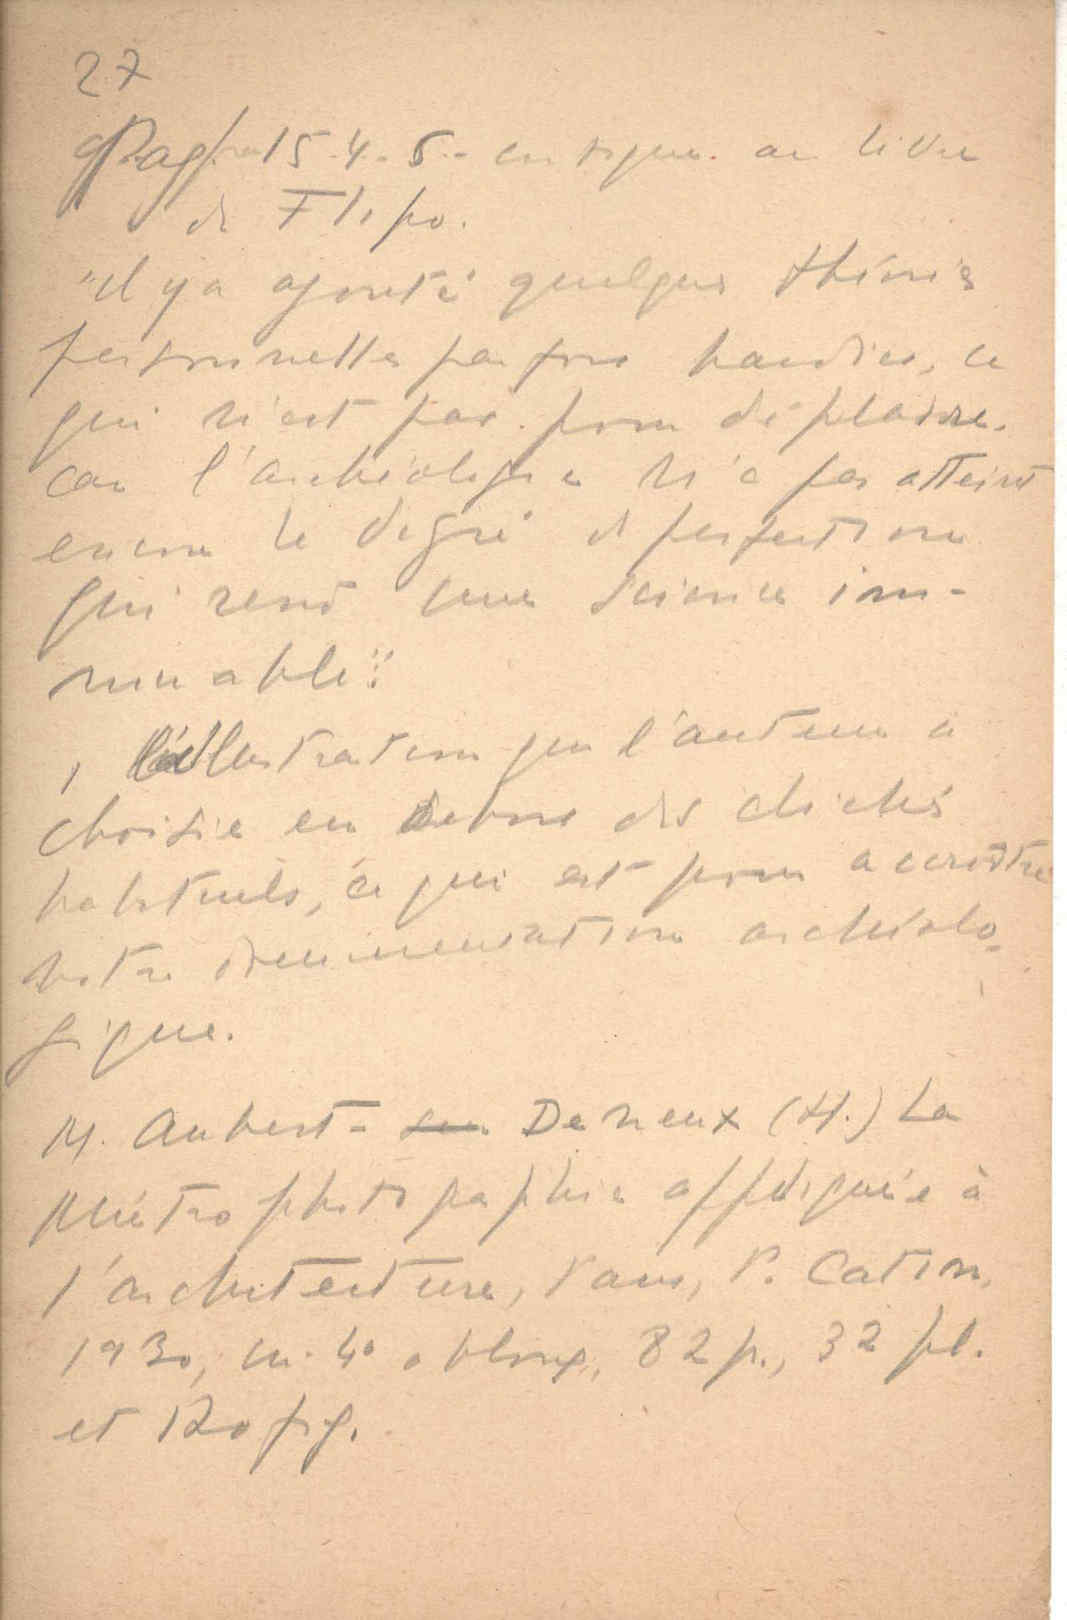 27
Page 154-5- critique au livre
de Flipo.
"Il y a ajouté quelques théories
personnelles parfois hardies, ce
qui n'est pas pour déplaire.
car l'archéologie n'a pas atteint
encore le degré de perfection
qui rend une science im-
muable".
L'illustration que l'auteur a
choisie en dehors des clichés
habituels, ce qui est pour accroître
notre documentation archéolo-
gique.
M. Aubert - Deneux (H.) La
Métrophotographie appliquée à
l'architecture, Paris, P. Catin,
1930, in-4° oblong, 82 p., 32 pl.
et 120 fig.